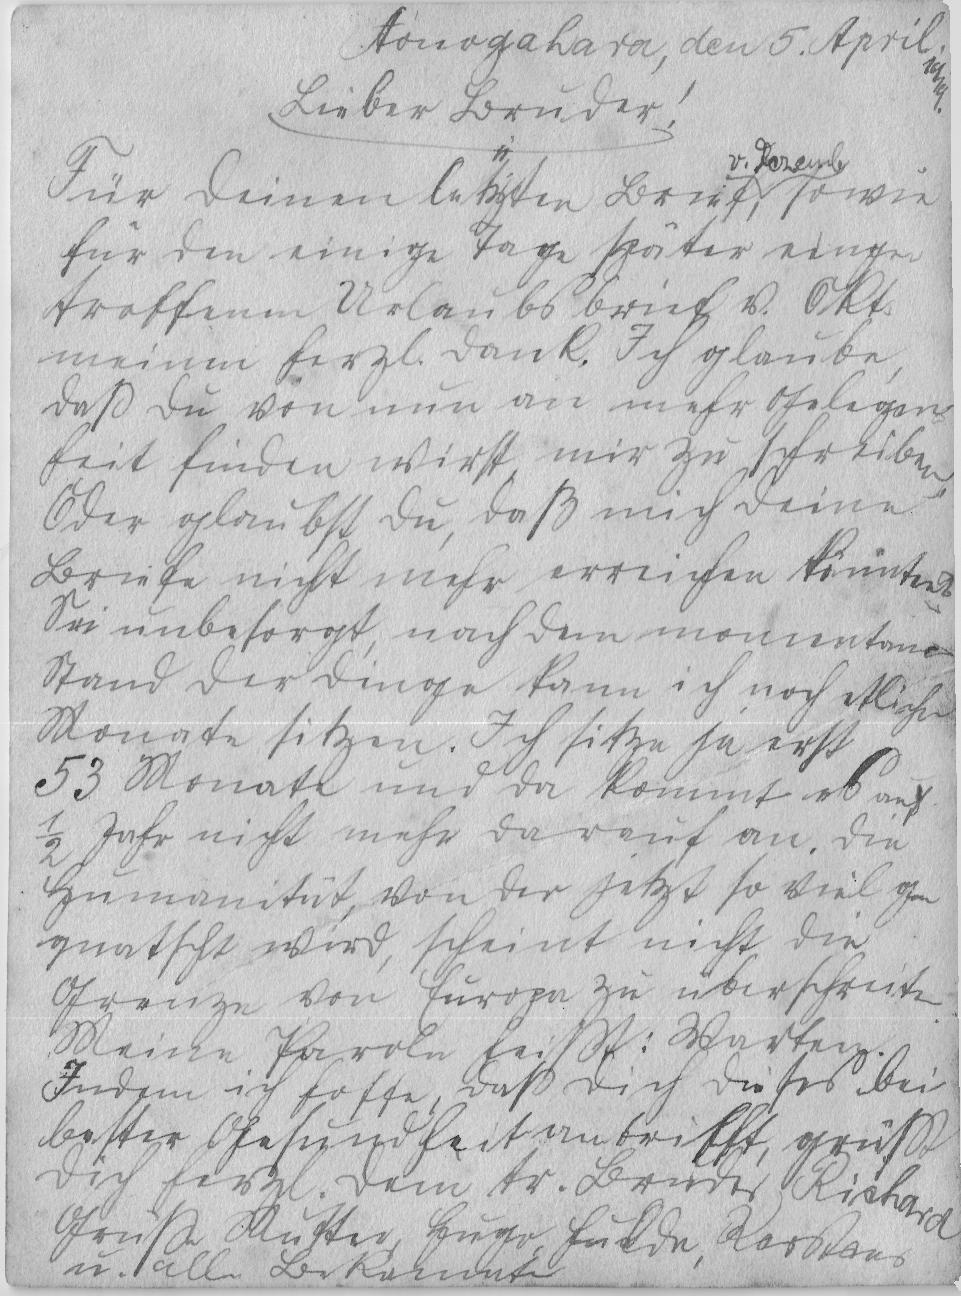 Aonogahara, den 5. April.
1919.
Lieber Bruder!
v. Dezemb
Für Deinen letzten Brief, sowie
für den einige Tage später einge
troffenen Urlaubsbrief v. Okt.
meinen herzl. Dank. Ich glaube,
daß Du von nun an mehr Gelegen
heit finden wirst, mir zu schreiben.
Oder glaubst Du, daß mich Deine
Briefe nicht mehr erreichen könnten?
Sei unbesorgt, nach dem momentanen
Stand der Dinge kann ich noch etliche
Monate sitzen. Ich sitze ja erst
53 Monate und da kommt es auf
½ Jahr nicht mehr darauf an. Die
Humanität, von der jetzt so viel ge
quatscht wird, scheint nicht die
Grenze von Europa zu überschreiten
Meine Parole heißt: Warten.
Indem ich hoffe, daß Dich dieses bei
bester Gesundheit antrifft, grüßt
Dich herzl. Dein tr. Bruder Richard
Grüße Mutter, Hugo,
u. alle Bekannte